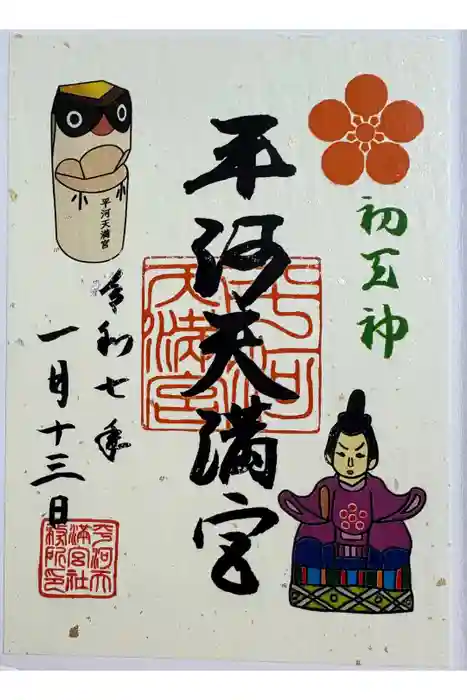 初天神
平河天満宮
平河
天満宮
小 小
平河天満宮
令和七年
一月十三日
平河天
満宮社
務所印